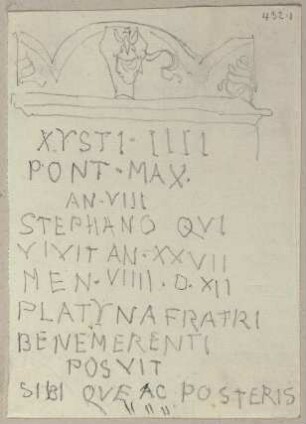 432-1
XYSTI · IIII
PONT · MAX.
AN · VIII
STEPHANO QVI
VIVIT AN · XXVII
MEN · VIIII · D · XII
PLATYNA FRATRI
BENEMERENTI
POSVIT
SIBI QVE AC POSTERIS